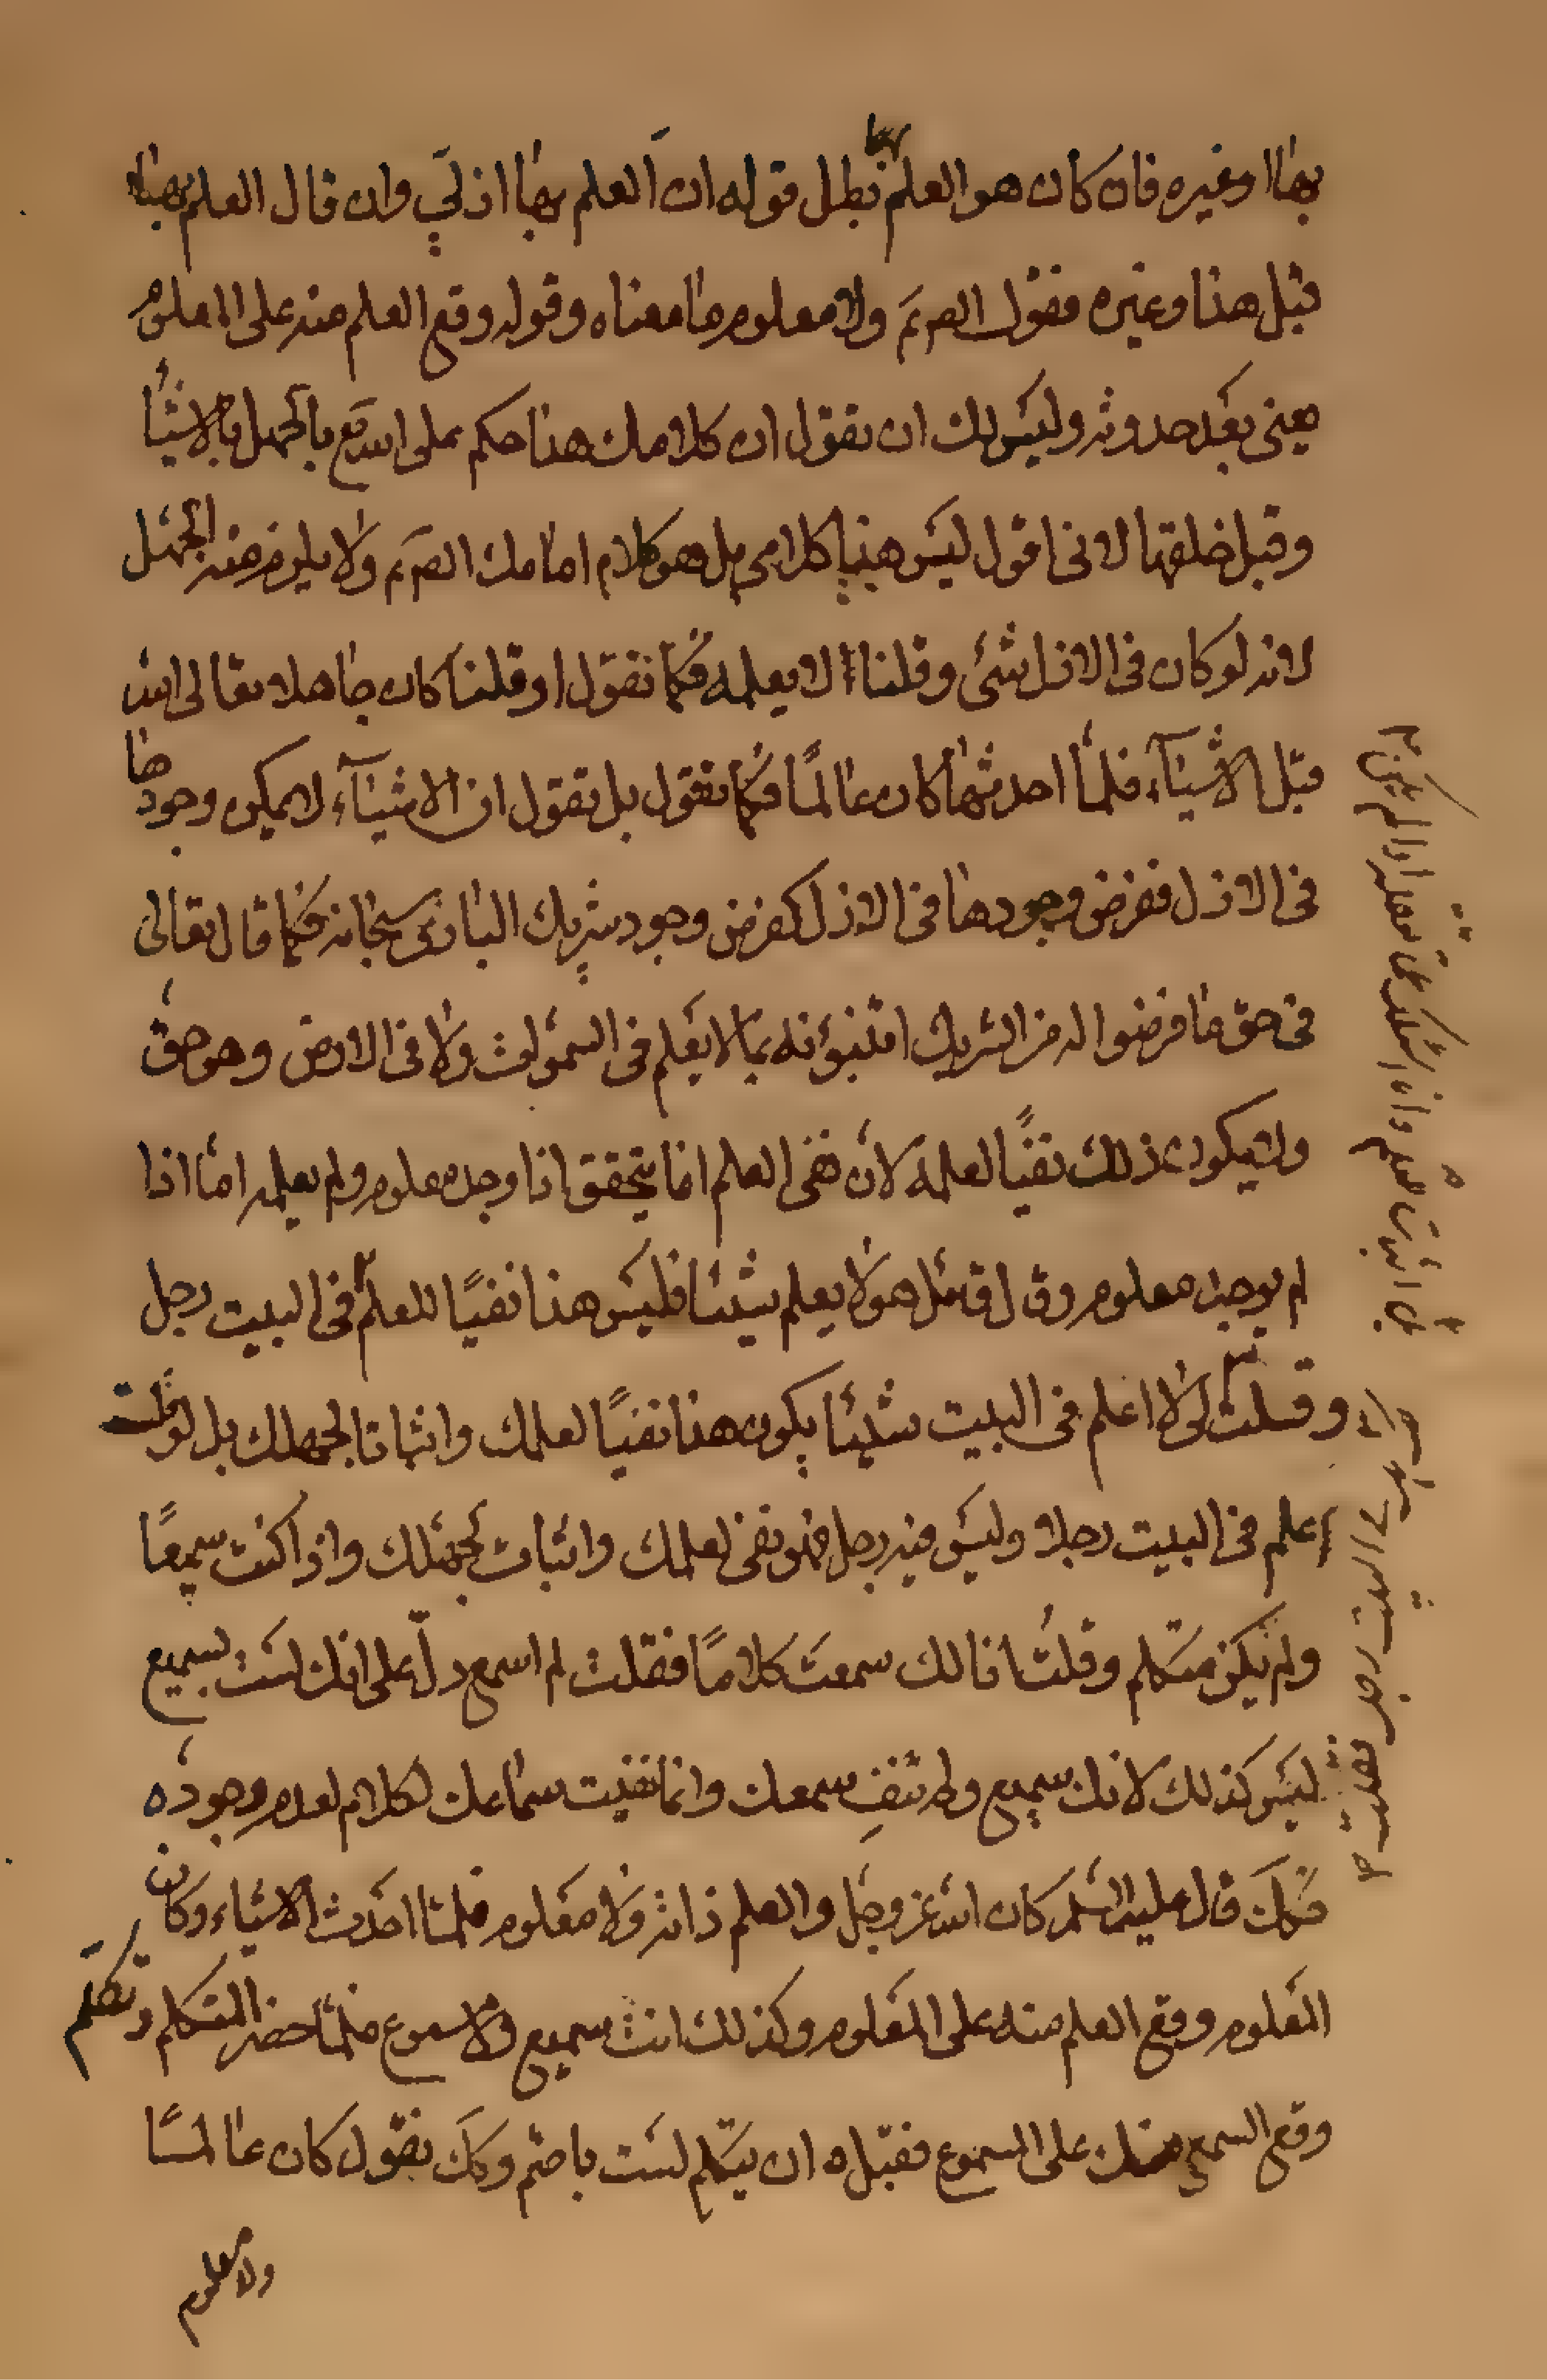 بها او غيره فان كان هو العلم بها بطل قوله ان العلم بها ازلي وان قال العلم بها
قبل هذا وغيره فقول الص ع ولا معلوم ما معناه وقوله وقع العلم منه على المعلوم
يعني بعد حدوثه وليس لك ان تقول ان كلامك هذا حكم على الله تع بالجهل بالاشيا
وقبل خلقها لاني اقول ليس هذا كلامي بل هو كلام امامك الص ع ولا يلزم منه الجهل
لانه لو كان في الازل شئ وقلنا لا يعلمه فكما تقول او قلنا كان جاهلا تعالى الله
قبل الاشيآء فلما احدثها كان عالمًا فكما تقول بل نقول ان الاشيآء لا يمكن وجودها
في الازل ففرض وجودها في الازل كفرض وجود شريك البارى سبحانه فكما قال تعالى
في حق ما فرضوا له من الشريك اتنبؤنه بما لا يعلم في السموات ولا في الارض وهو حق
ولا يكون ذلك نفيًا لعلمه لان نفى العلم انما يتحقق اذا وجد معلوم ولم يعلمه اما اذا
لم يوجد معلوم وقال قائل هو لا يعلم شيئا فليس هذا نفيًا للعلم في البيت رجل
وقلت لي لا اعلم في البيت شيئا يكون هذا نفيًا لعلمك واثباتا لجهلك بل لو قلت
اعلم في البيت رجلا وليس فيه رجل فهو نفى لعلمك واثبات لجهلك واذا كنت سميعًا
ولم يكن متكلم وقلت انا لك سمعت كلامًا فقلت لم اسمع دلّ على انك لست بسميع
ليس كذلك لانك سميع ولم تنفِ سمعك وانما نفيت سماعك لكلام لعدم وجوده
فكك قال عليه السلم كان الله عز وجل والعلم ذاته ولا معلوم فلما احدث الاشياء وكان
المعلوم وقع العلم منه على المعلوم وكذلك انت سميع ولا مسموع فلما حضر المتكلم وتكلم
وقع السمع منك على المسموع فقبل ان يتكلم لست باصم وكك نقول كان عالمًا
ولا معلوم